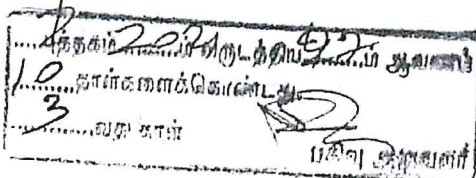 1 புத்தகம் 202 ம் வருடத்திய 92 ம் ஆவணம்
10 தாள்களைக்கொண்டது.
3 வது தாள்
பதிவு அலுவலர்